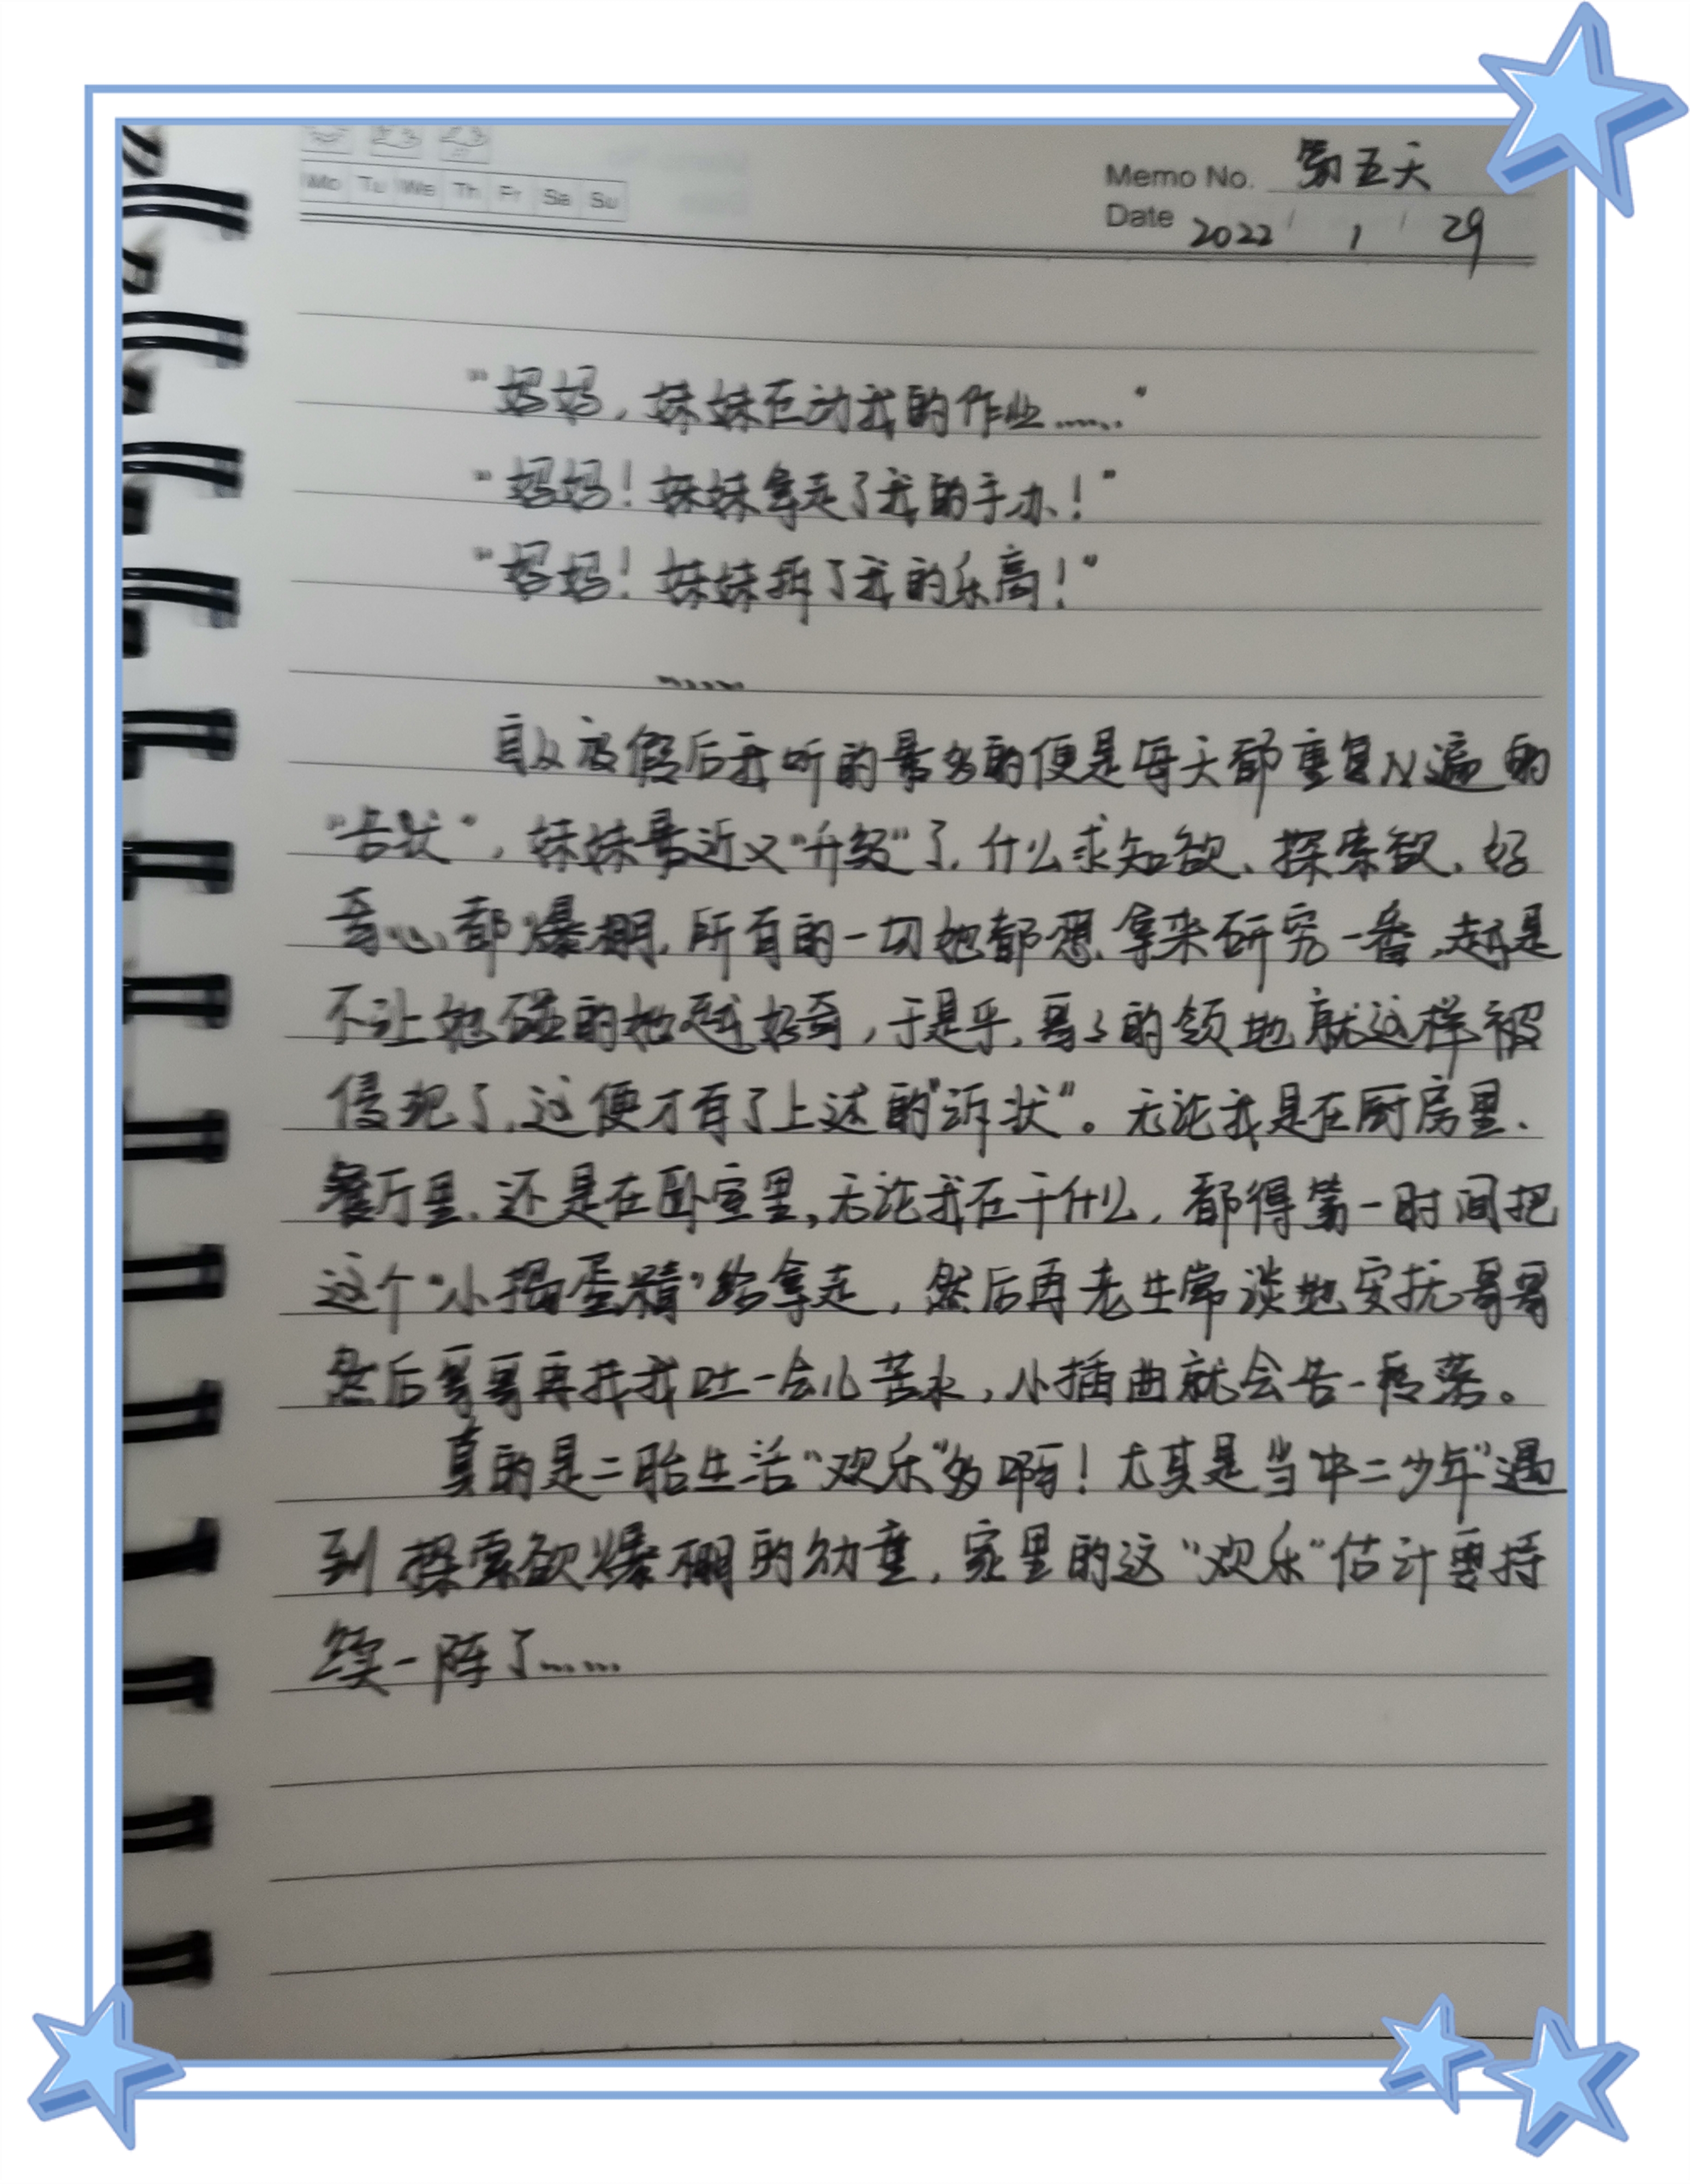 Mo Tu We Th Fr Sa Su
Memo No. 第五天
Date 2022 / 1 / 29
"妈妈，妹妹在动我的作业……"
"妈妈！妹妹拿走了我的手办！"
"妈妈！妹妹拆了我的乐高！"
……
自从放假后我听的最多的便是每天都重复N遍的
"告状"，妹妹最近又"升级"了，什么求知欲、探索欲、好
奇心都爆棚，所有的一切她都想拿来研究一番，越是
不让她碰的她越好奇，于是乎，哥哥的领地就这样被
侵犯了，这便才有了上述的"诉状"。无论我是在厨房里、
餐厅里、还是在卧室里，无论我在干什么，都得第一时间把
这个"小捣蛋精"给拿走，然后再老生常谈地安抚哥哥
然后哥哥再找我吐一会儿苦水，小插曲就会告一段落。
真的是二胎生活"欢乐"多啊！尤其是当"中二少年"遇
到探索欲爆棚的幼童，家里的这"欢乐"估计要持
续一阵了……